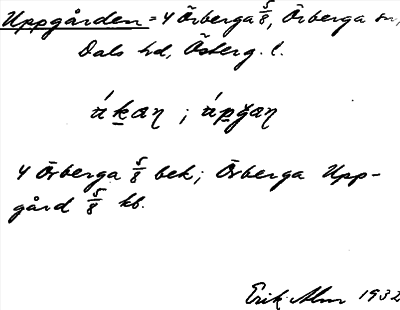 Uppgården = 4 Örberga 5/8, Örberga sn,
Dals hd, Österg. l.
4 Örberga 5/8 bek; Örberga Upp-
gård 5/8 kb.
Erik Alm 1932